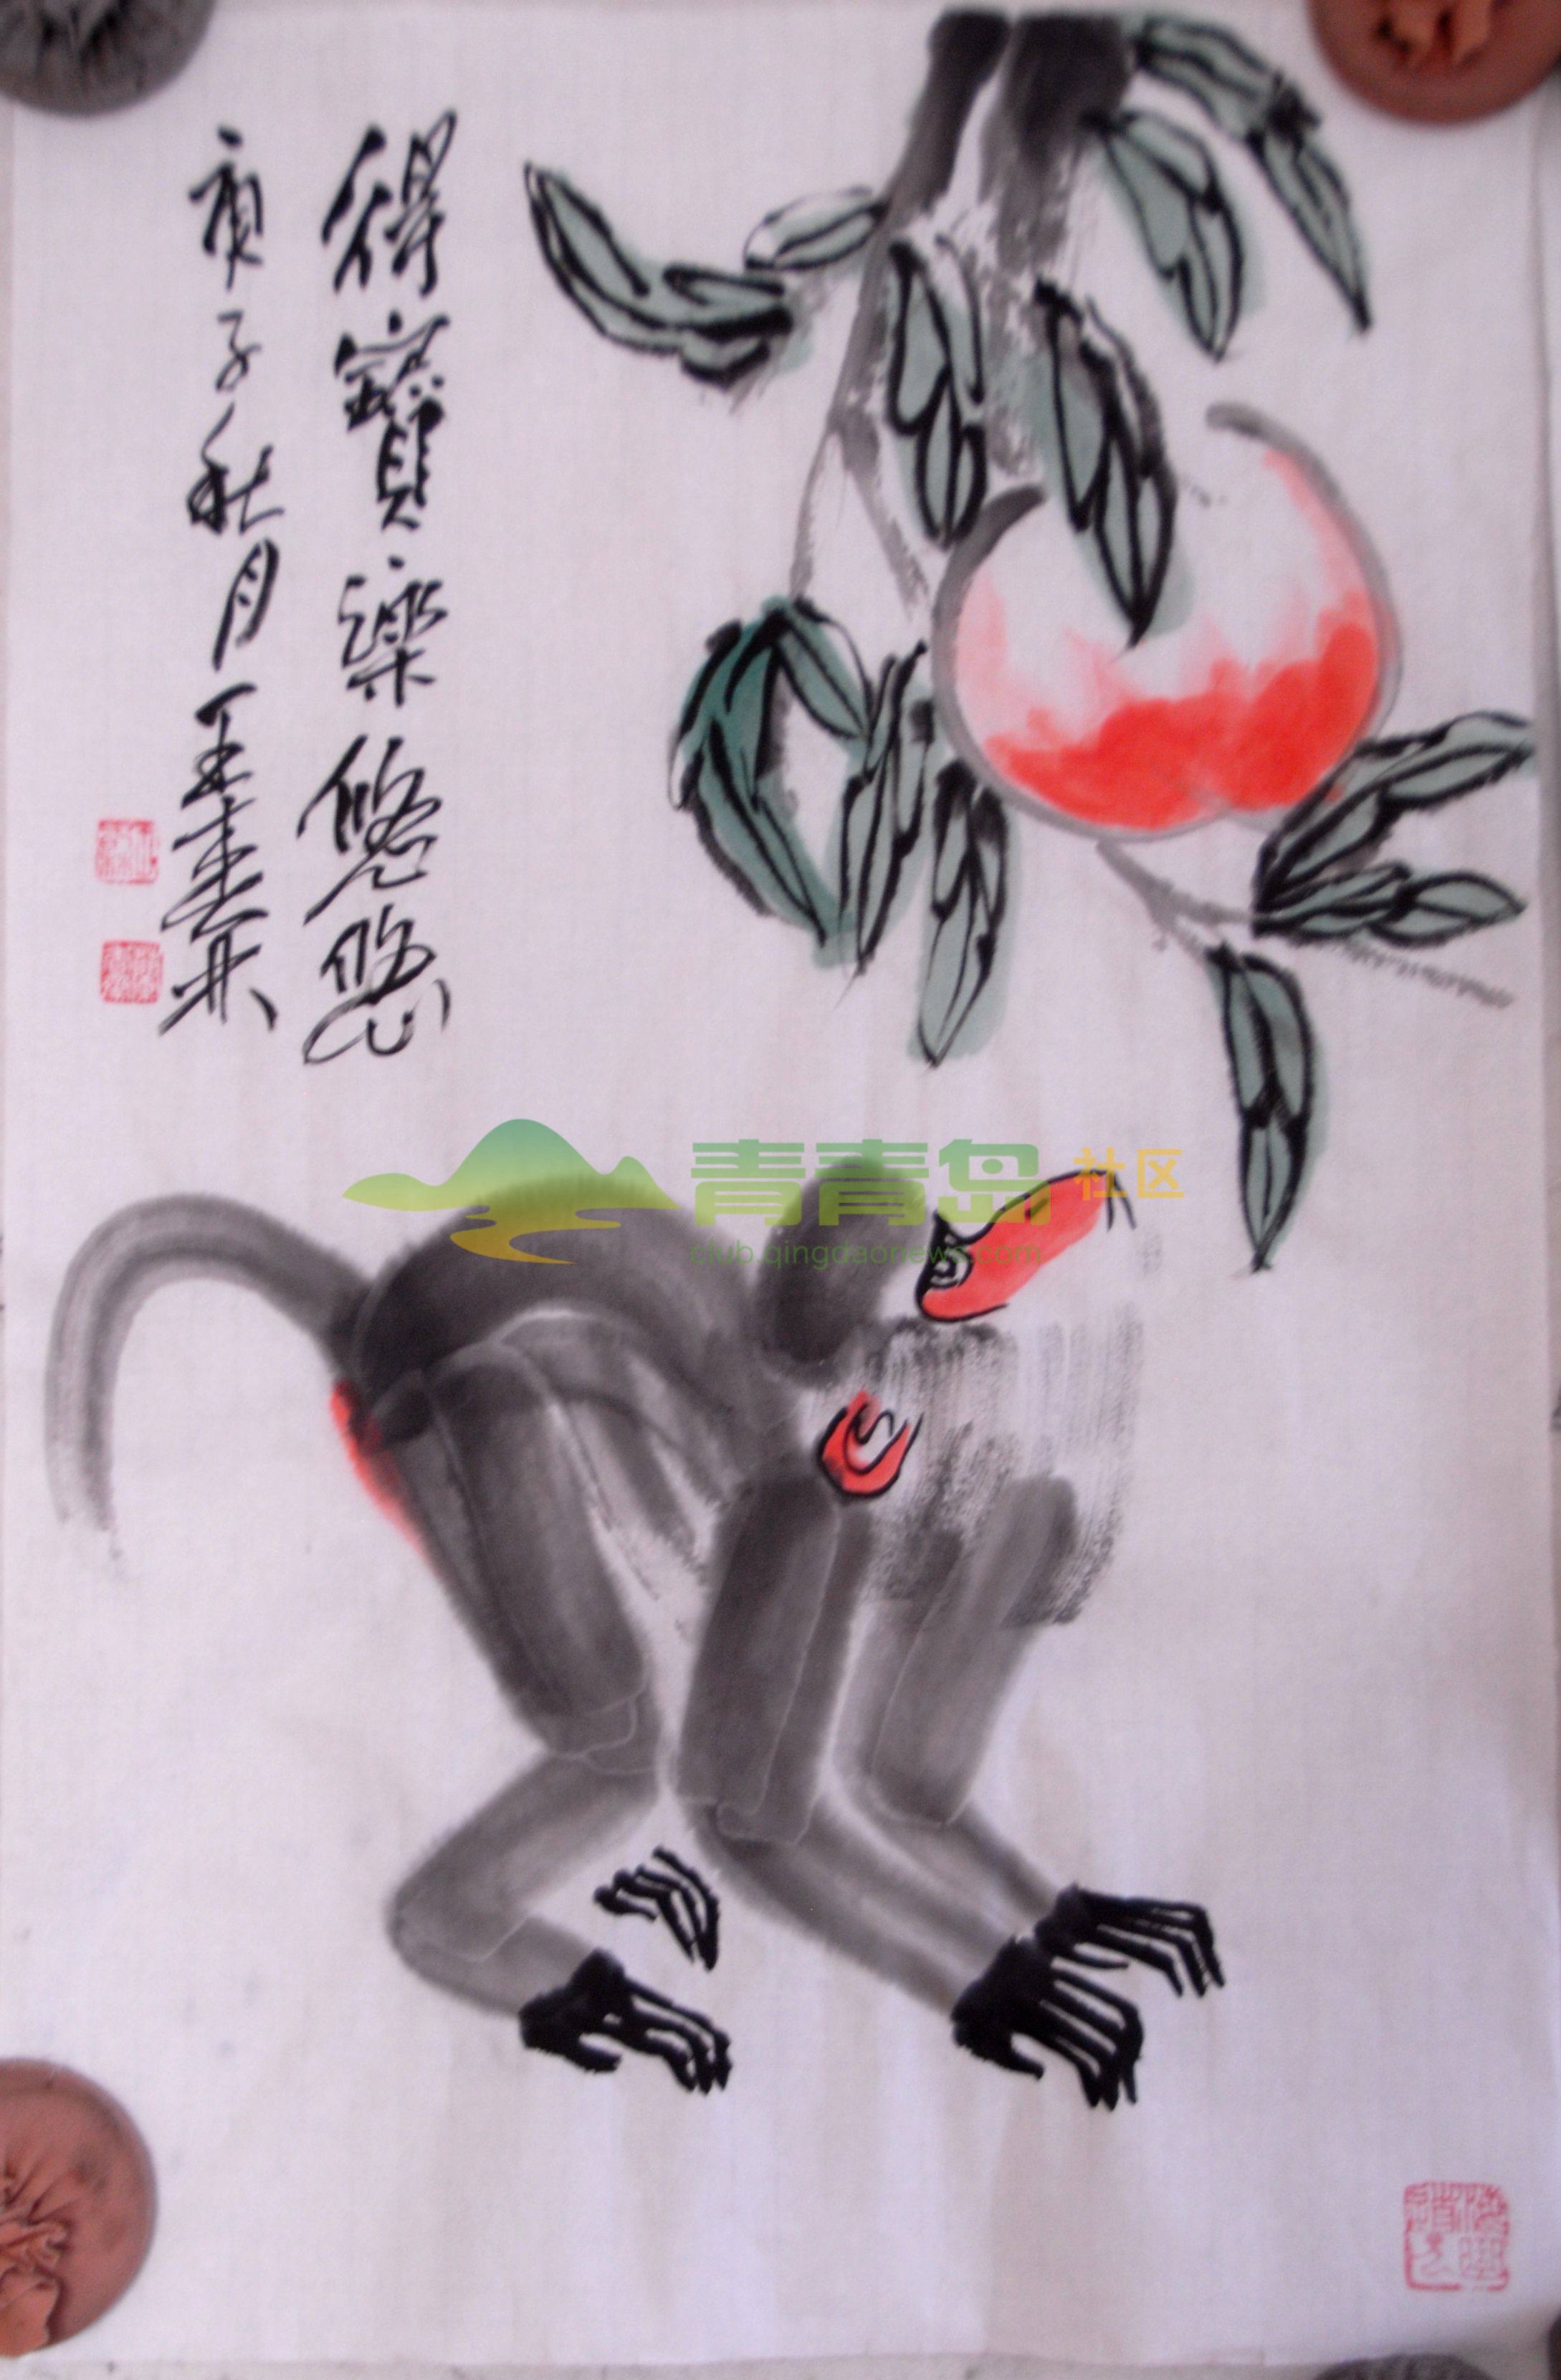 得寶樂悠悠
庚子秋月王
青青岛社区
club.qingdaonews.com